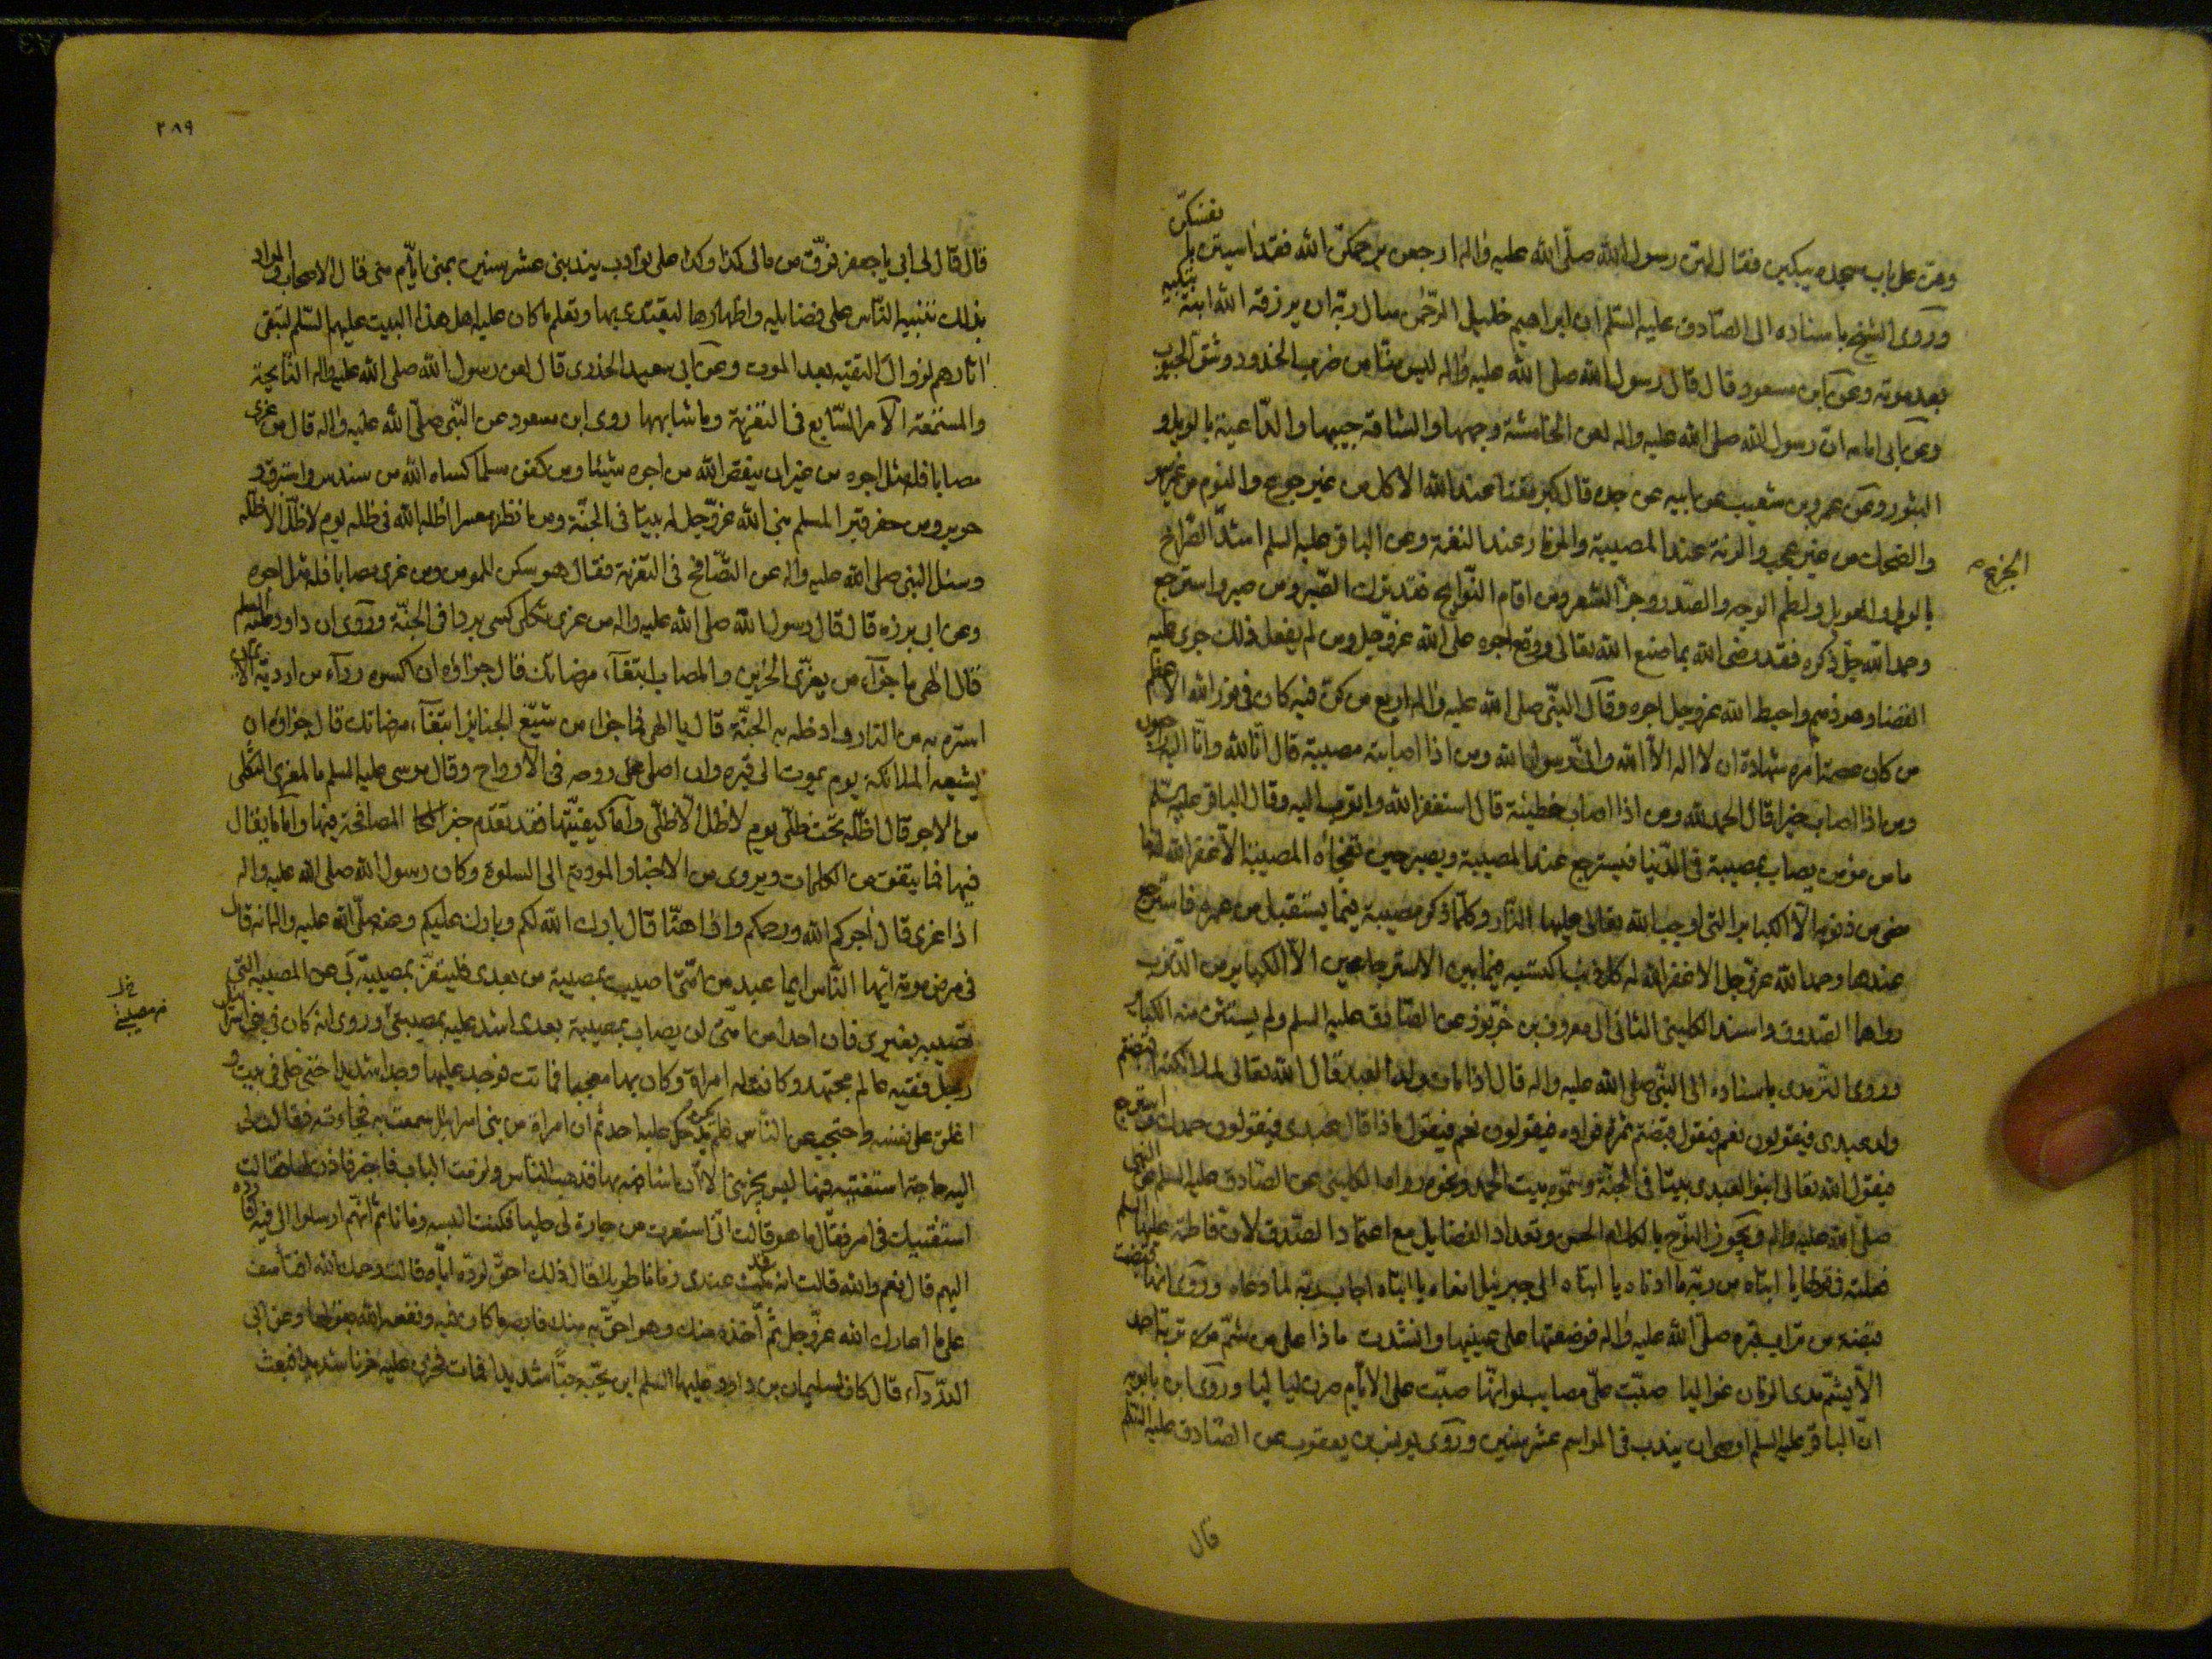 وهن على باب مسجده يبكين فقال لهن رسول الله صلى الله عليه واله ارجعن يرحمكن الله فقد اسيتن
بانفسكن
وروى الشيخ باسناده الى الصادق عليه السلم ان ابراهيم خليل الرحمن سال ربه ان يرزقه الله ابنة تبكيه
بعد موته وعن ابن مسعود قال قال رسول الله صلى الله عليه واله ليس منا من ضرب الخدود وشق الجيوب
وعن ابى امامه ان رسول الله صلى الله عليه واله لعن الخامشة وجهها والشاقة جيبها والداعية بالويل و
الثبور وعن عمرو بن شعيب عن ابيه عن جده قال كبر مقتا عند الله الاكل من غير جوع والنوم من غير سهر
والضحك من غير عجب والرنة عند المصيبة والمزمار عند النغمة وعن الباقر عليه السلم اشد الصراخ
الجزع
بالويل والعويل ولطم الوجه والصدر وجز الشعر ومن اقام النوايح فقد ترك الصبر ومن صبر واسترجع
وحمد الله جل ذكره فقد رضى بما صنع الله تعالى ووقع اجره على الله عز وجل ومن لم يفعل ذلك جرى عليه
القضا وهو ذميم واحبط الله عز وجل اجره وقال النبى صلى الله عليه واله اربع من كن فيه كان فى نور الله الاعظم
من كان عصمة امره شهادة ان لا اله الا الله وانى رسول الله ومن اذا اصابته مصيبة قال انا لله وانا اليه راجعون
ومن اذا اصاب خيرا قال الحمد لله ومن اذا اصاب خطيئة قال استغفر الله واتوب اليه وقال الباقر عليه السلم
ما من مؤمن يصاب بمصيبة فى الدنيا فيسترجع عند المصيبة ويصبر حين تفجأه المصيبة الا غفر الله له ما
مضى من ذنوبه الا الكباير التى اوجب الله تعالى عليها النار وكلما ذكر مصيبة فيما يستقبل من عمره فاسترجع
عندها وحمد الله عز وجل الا غفر الله له كل ذنب اكتسبه فيما بين الاسترجاعين الا الكباير من الذنوب
رواهما الصدوق واسند الكلينى الثانى الى معروف بن خربوذ عن الصادق عليه السلم ولم يستثن منه الكباير
وروى الترمدى باسناده الى النبى صلى الله عليه واله قال اذا مات ولد العبد قال الله تعالى لملائكته اقبضتم
ولد عبدى فيقولون نعم فيقول قبضتم ثمرة فواده فيقولون نعم فيقول ماذا قال عبدى فيقولون حمدك واسترجع
فيقول الله تعالى ابنوا لعبدى بيتا فى الجنة وسموه بيت الحمد ونحوه رواه الكلينى عن الصادق عليه السلم عن النبى
صلى الله عليه واله ويجوز النوح بالكلام الحسن وتعداد الفضايل مع اعتماد الصدق لان فاطمة عليها السلم
فعلته فى قولها يا ابتاه من ربه ما ادناه يا ابتاه الى جبرئيل انعاه يا ابتاه اجاب ربه لما دعاه وروى انها قبضت
قبضة من تراب قبره صلى الله عليه واله فوضعتها على عينيها وانشدت ماذا على من شم تربة احمد
الا يشم مدى الزمان غواليا صبت على مصايب لو انها صبت على الايام صرن لياليا وروى ابن بابويه
ان الباقر عليه السلم اوصى ان يندب فى المواسم عشر سنين وروى يونس بن يعقوب عن الصادق عليه السلم
قال
٢٨٩
قال قال لى ابى يا جعفر اوقف من مالى كذا وكذا على نوادب يندبنى عشر سنين بمنى ايام منى قال الاصحاب والمراد
بذلك تنبيه الناس على فضايله واظهارها ليقتدى بها وتعلم ما كان عليه اهل هذا البيت عليهم السلم لتبقى
اثارهم لزوال التقية بعد الموت وعن ابى سعيد الخدرى قال لعن رسول الله صلى الله عليه واله النايحة
والمستمعة الامر السابع فى التعزية وما شابهها روى ابن مسعود عن النبى صلى الله عليه واله قال من عزى
مصابا فله مثل اجره من غير ان ينقص الله من اجره شيئا ومن كفن مسلما كساه الله من سندس واستبرق و
حرير ومن حفر قبرا لمسلم بنى الله عز وجل له بيتا فى الجنة ومن انظر معسرا اظله الله فى ظله يوم لا ظل الا ظله
وسئل النبى صلى الله عليه واله عن التصافح فى التعزية فقال هو سكن للمومن ومن عزى مصابا فله مثل اجره
وعن ابى برزه قال قال رسول الله صلى الله عليه واله من عزى ثكلى كسى بردا فى الجنة وروى ان داود عليه السلم
قال الهى ما جزآء من يعزى الحزين والمصاب ابتغآء مرضاتك قال جزاؤه ان اكسوه ردآء من اردية الايمان
استره به من النار وادخله به الجنة قال يا الهى فما جزاء من شيع الجنايز ابتغآء مرضاتك قال جزاؤه ان
يشيعه الملائكة يوم يموت الى قبره وان اصلى على روحه فى الارواح وقال موسى عليه السلم ما لمعزى الثكلى
من الاجر قال اظله تحت ظلى يوم لا ظل الا ظلى واما كيفيتها فقد تقدم خبر المصافحة فيها واما ما يقال
فيها فما يتفق من الكلمات ويروى من الاخبار المودية الى السلوة وكان رسول الله صلى الله عليه واله
اذا عزى قال اجركم الله ورحمكم واذا هنا قال بارك الله لكم وبارك عليكم وعنه صلى الله عليه واله انه قال
فى مرض موته ايها الناس ايما عبد من امتى اصيب بمصيبة من بعدى فليتعز بمصيبته بى عن المصيبة التى
تصيبه بغيرى فان احدا من امتى لن يصاب بمصيبة بعدى اشد عليه بمصيبتى وروى انه كان فى بنى اسرائيل
من مصيبتى
رجل فقيه عالم مجتهد وكانت له امراة وكان بها معجبا فماتت فوجد عليها وجدا شديدا حتى خلى فى بيت و
اغلق على نفسه واحتجب عن الناس فلم يكن يدخل عليه احد ثم ان امراة من بنى اسرائيل سمعت به فجاءته فقالت لى
اليه حاجة استفتيه فيها ليس يجزئنى الا ان اشافهه بها فذهب الناس ولزمت الباب فاخبر فاذن لها فقالت
استفتيك فى امر فقال ما هو قالت انى استعرت من جارة لى حليا فكنت البسه زمانا ثم انهم ارسلوا الى فيه افارده
اليهم قال نعم والله قالت انه قد مكث عندى زمانا طويلا قال ذلك احق لردك اياه قالت رحمك الله افتأسف
على ما اعارك الله عز وجل ثم اخذه منك وهو احق به منك فابصر ما كان فيه ونفعه الله بقولها وعن ابى
الدردآء قال كان لسليمان بن داود عليهما السلم ابن يحبه حبا شديدا فمات فحزن عليه حزنا شديدا فبعث